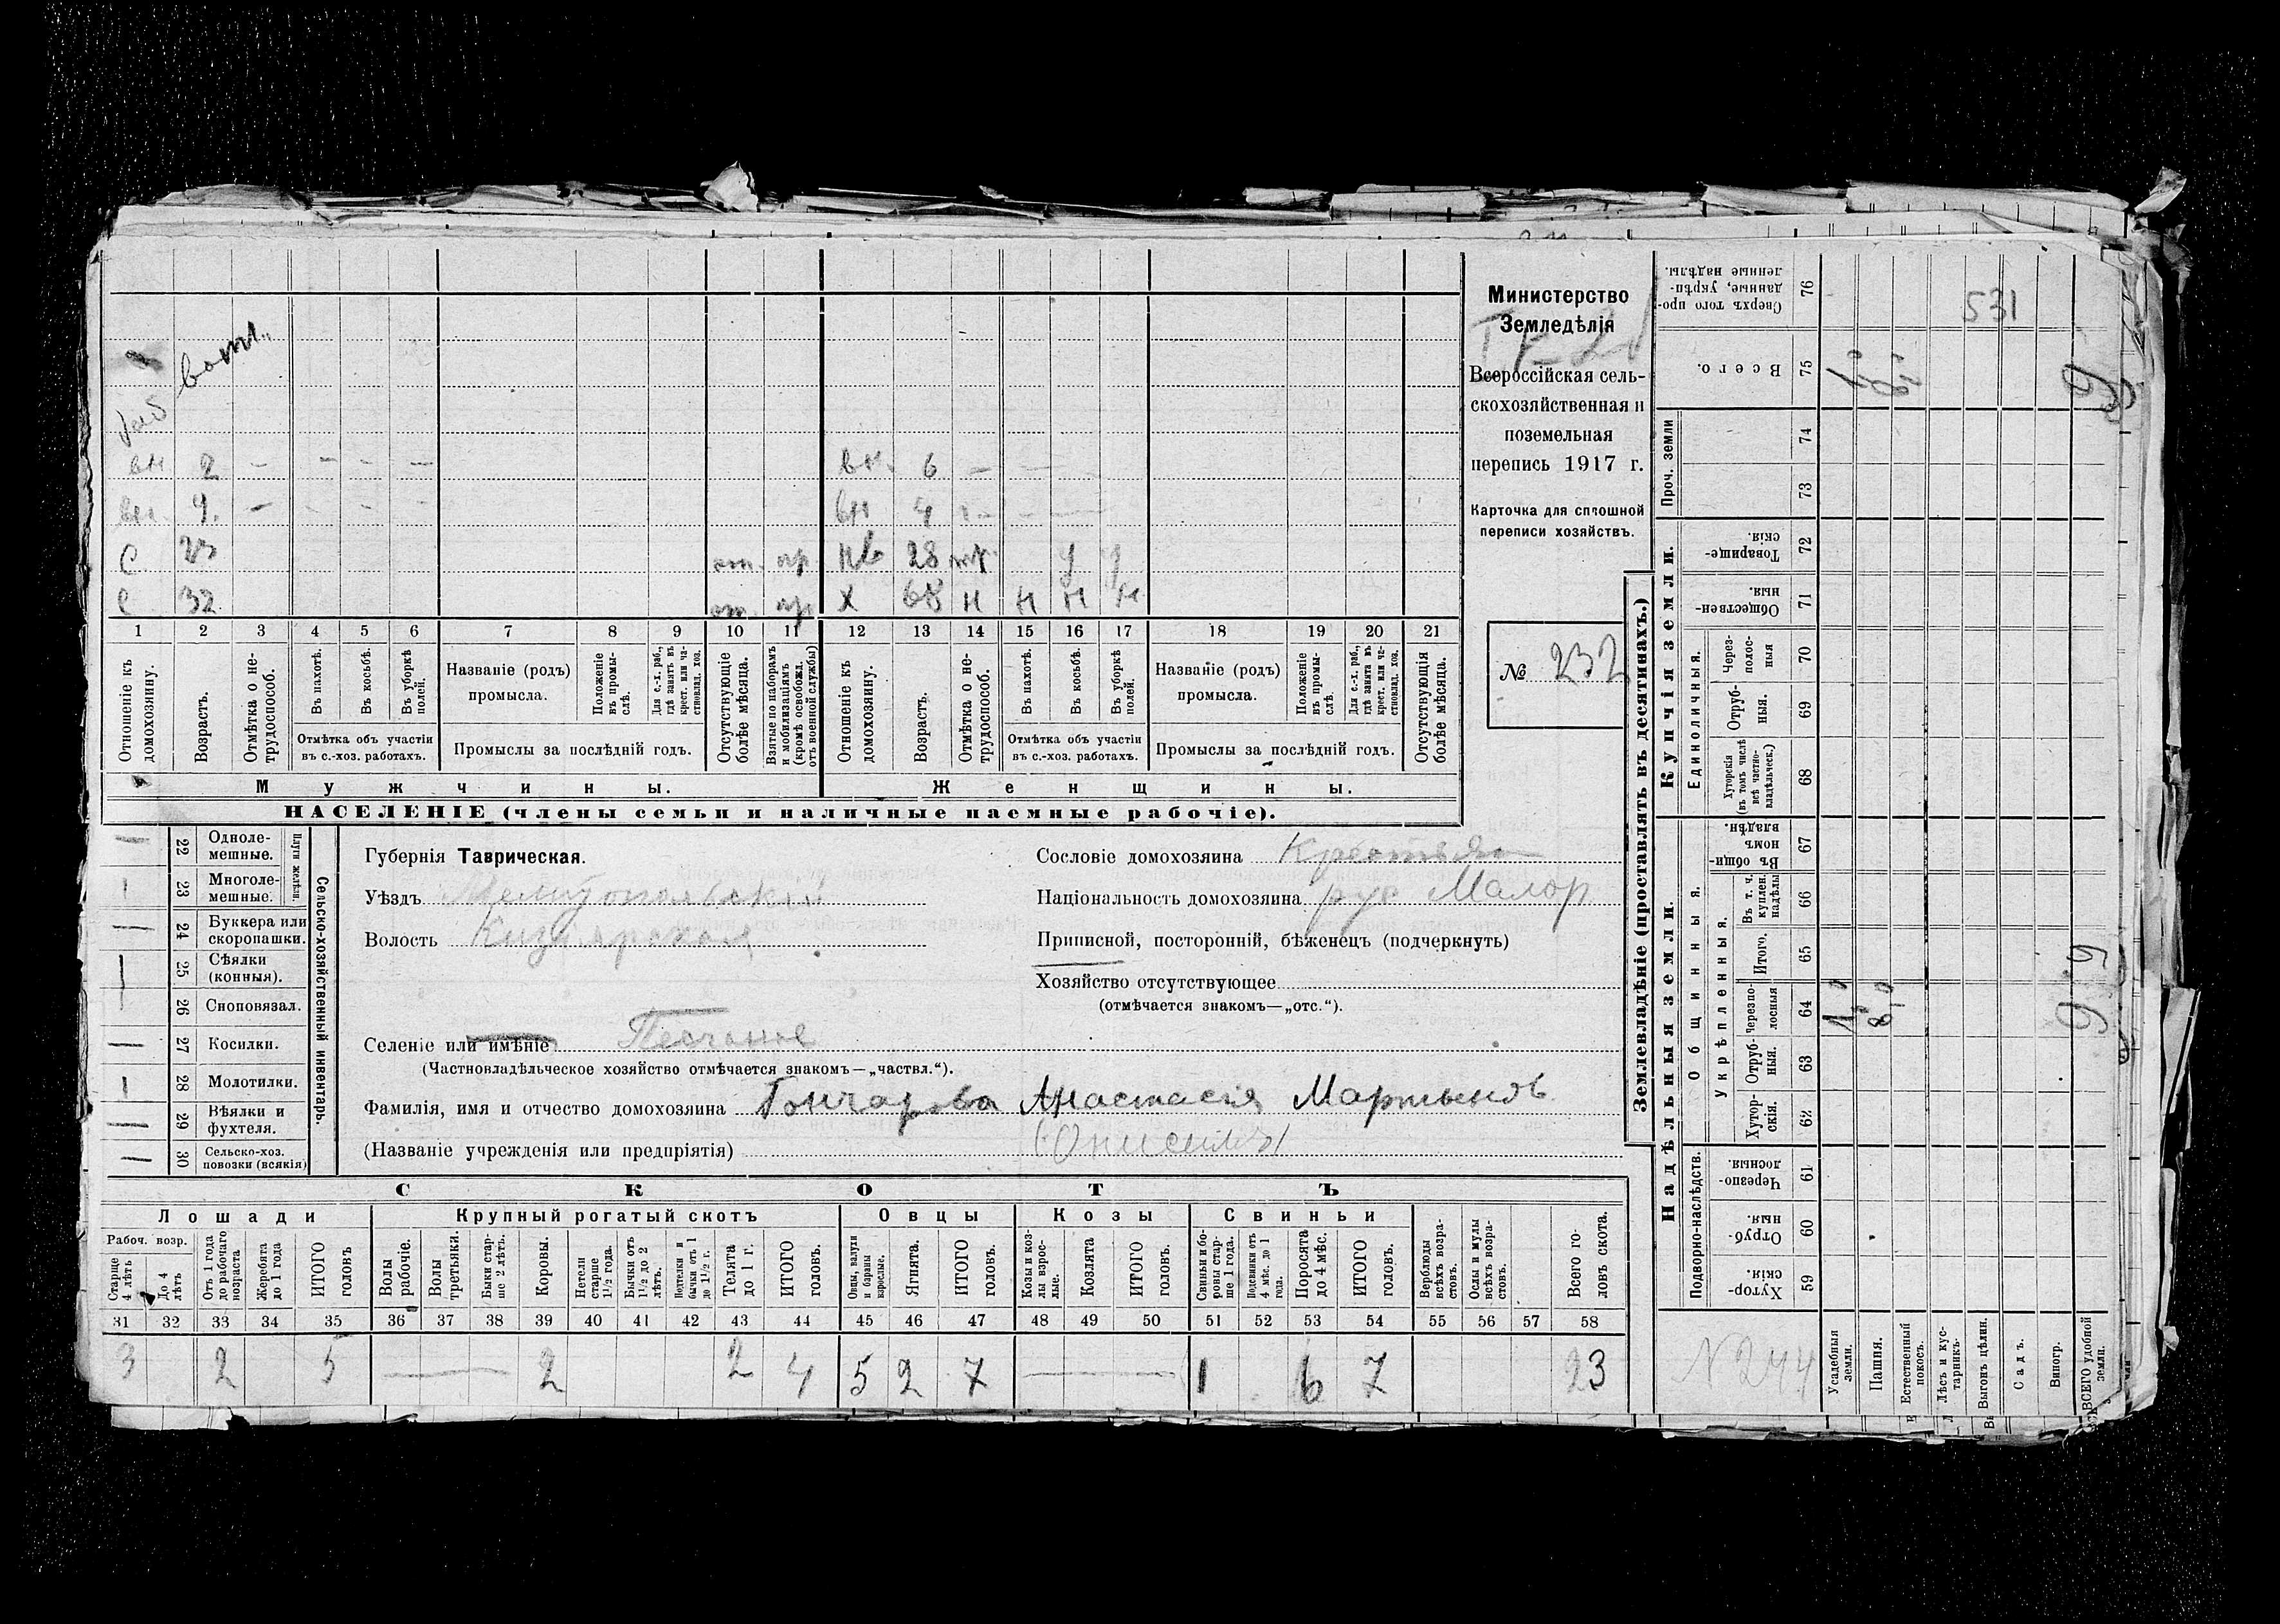 Министерство
Земледѣлія
Всероссійская сель-
скохозяйственная и
поземельная
перепись 1917 г.
Карточка для сплошной
переписи хозяйствъ.
№ 232
вн 2 — — — — вн. 6 — —
вн. 9. — - — - вн 4 — — —
С от. ар. нв 28
С 32 от. ар Х 68 н н н н
1 2 3 4 5 6 7 8 9 10 11 12 13 14 15 16 17 18 19 20 21
Отношеніе къ домохозяину.
Возрастъ.
Отмѣтка о не-трудоспособ.
Въ пахотѣ.
Въ косьбѣ.
Въ уборкѣ полей.
Отмѣтка объ участіи въ с.-хоз. работахъ.
Названіе (родъ) промысла.
Положеніе въ промы-слѣ.
Для с.-х. раб., гдѣ занятъ въ крест. или ча-стновлад. хоз.
Промыслы за послѣдній годъ.
Отсутствующіе болѣе мѣсяца.
Взятые по наборамъ и мобилизаціямъ (кромѣ освобожд. отъ военной службы)
Отношеніе къ домохозяину.
Возрастъ.
Отмѣтка о не-трудоспособ.
Въ пахотѣ.
Въ косьбѣ.
Въ уборкѣ полей.
Отмѣтка объ участіи въ с.-хоз. работахъ.
Названіе (родъ) промысла.
Положеніе въ промы-слѣ.
Для с.-х. раб., гдѣ занятъ въ крест. или ча-стновлад. хоз.
Промыслы за послѣдній годъ.
Отсутствующія болѣе мѣсяца.
Мужчины. Женщины.
НАСЕЛЕНІЕ (члены семьи и наличные наемные рабочіе).
22 Одноле-мешные.
23 Многоле-мешные.
Плуги желѣзн.
24 Буккера или скоропашки.
25 Сѣялки (конныя).
26 Сноповязал.
27 Косилки.
28 Молотилки.
29 Вѣялки и фухтеля.
30 Сельско-хоз. повозки (всякія)
Сельско-хозяйственный инвентарь.
Губернія Таврическая.
Уѣздъ Мелитопольскій
Волость Кизіярская
Селеніе или имѣніе Песчаное
(Частновладѣльческое хозяйство отмѣчается знакомъ—„частвл.“).
Сословіе домохозяина Крестьян
Національность домохозяина рус Малор
Приписной, посторонній, бѣженецъ (подчеркнуть)
Хозяйство отсутствующее
(отмѣчается знакомъ—„отс.“).
Фамилія, имя и отчество домохозяина Гончарова Анастасія Мартынов
(Названіе учрежденія или предпріятія)
СКОТЪ
Лошади Крупный рогатый скотъ Овцы Козы Свиньи
Рабоч. возр.
Старше 4 лѣтъ
До 4 лѣтъ
Отъ 1 года до рабочаго возраста
Жеребята до 1 года
ИТОГО головъ
Волы рабочіе.
Волы третьяки.
Быки стар-ше 2 лѣтъ.
Коровы.
Нетели старше 1½ года.
Бычки отъ 1½ до 2 лѣтъ.
Подтелки и бычки отъ 1 до 1½ г.
Телята до 1 г.
ИТОГО головъ.
Овцы, валухи и бараны взрослые.
Ягнята.
ИТОГО головъ.
Козы и коз-лы взрос-лые.
Козлята
ИТОГО головъ.
Свиньи и бо-ровы стар-ше 1 года.
Подсвинки отъ 4 мѣс. до 1 года.
Поросята до 4 мѣс.
ИТОГО головъ.
Верблюды всѣхъ возра-стовъ.
Ослы и мулы всѣхъ возра-стовъ.
Всего го-ловъ скота.
31 32 33 34 35 36 37 38 39 40 41 42 43 44 45 46 47 48 49 50 51 52 53 54 55 56 57 58
3 2 5 — 2 2 4 5 2 7 — 1 6 7 23
Землевладѣніе (проставлять въ десятинахъ.)
Купчія земли.
Надѣльныя земли.
Сверхъ того про-данные, укрѣп-ленные надѣлы. 76
531
Всего. 75
Проч. земли 74 73
Товарище-скія. 72
Обществен-ныя. 71
Единоличныя.
Через-полос-ныя 70
Отруб-ныя. 69
Хуторскія (въ томъ числѣ всѣ частно-владѣльческ.) 68
Общинныя.
Въ общин-номъ владѣн. 67
Укрѣпленныя.
Въ т. ч. куплен. надѣлы 66
Итого. 65
Черезпо-лосныя 64
Отруб-ныя. 63
Хутор-скія. 62
Подворно-наслѣдств.
Черезпо-лосныя. 61
Отруб-ныя. 60
Хутор-скія. 59
N 244
Усадебныя земли.
Пашня.
Естественный покосъ.
Лѣсъ и кус-тарникъ.
Выгонъ цѣлин.
Садъ.
Виногр.
ВСЕГО удобной земли.